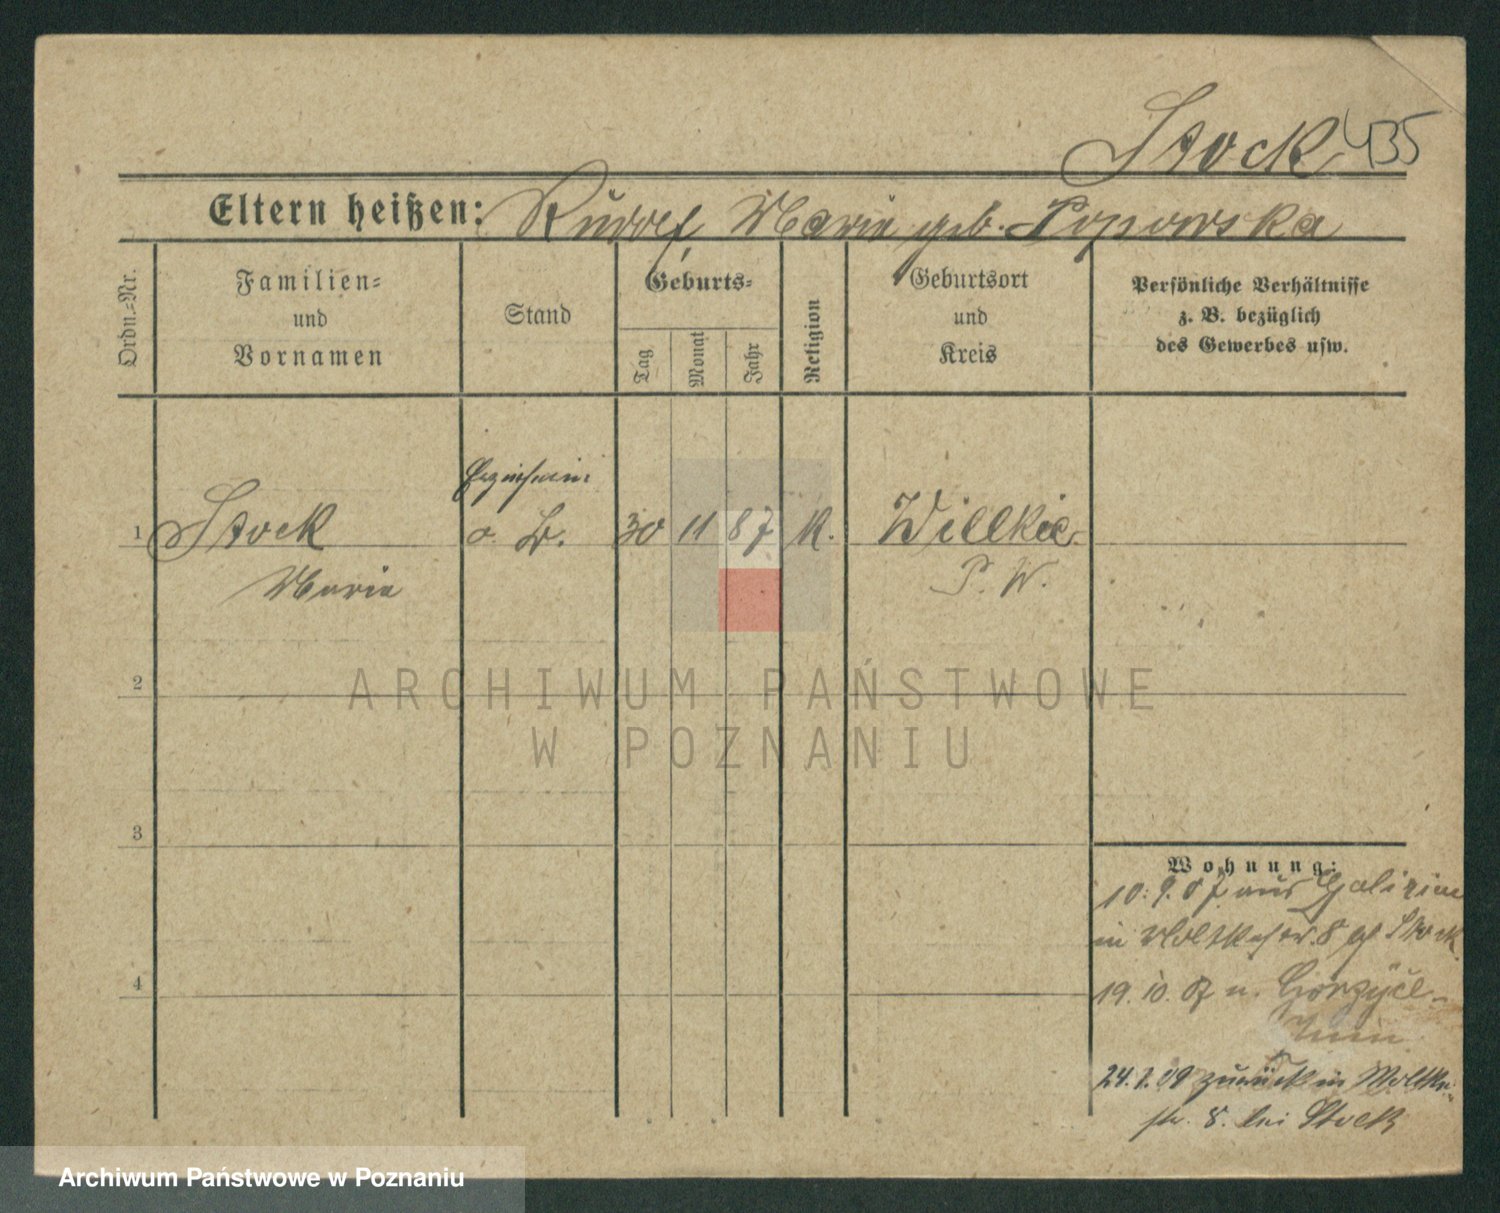 Stock 435
Eltern heißen: Rudolf Maria geb. Popowska
Ordn.=Nr.
Familien=
und
Vornamen
Stand
Geburts=
Tag
Monat
Jahr
Religion
Geburtsort
und
Kreis
Persönliche Verhältnisse
z. B. bezüglich
des Gewerbes usw.
1 Stock
Maria
Erzieherin
o. B.
30 11 87 K.
Willkie
P. W.
2
3
4
Wohnung:
10. 9. 07 aus Galizien
in Moltkestr. 8 bei Stock
19. 10. 07 n.
24. 1. 09 zurück in Moltke=
str. 8. bei Stock
ARCHIWUM PAŃSTWOWE
W POZNANIU
Archiwum Państwowe w Poznaniu